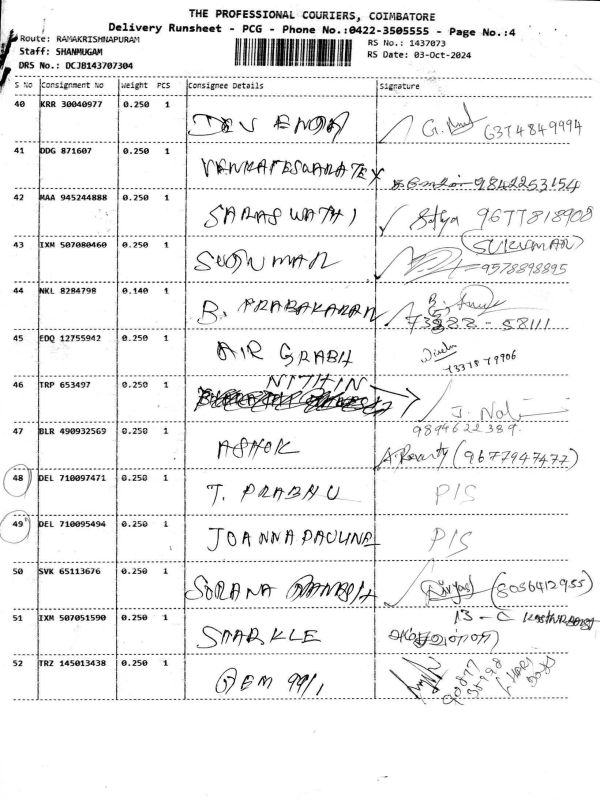 THE PROFESSIONAL COURIERS, COIMBATORE
Delivery Runsheet - PCG - Phone No.:0422-3505555 - Page No.:4
Route: RAMAKRISHNAPURAM
RS No.: 1437073
Staff: SHANMUGAM
RS Date: 03-Oct-2024
DRS No.: DCJB143707304
S No Consignment No Weight PCS Consignee Details Signature
40 KRR 30040977 0.250 1
6374849994
41 DDG 871607 0.250 1
VENKATESWARA TEX 9842253154
42 MAA 945244888 0.250 1
SARASWATHI Sathya 9677818908
43 IXM 507080460 0.250 1
SUKUMAR (SUKUMAR)
9578898895
44 NKL 8284798 0.140 1
B. PRABAKARAN 73322 - 58111
45 EDQ 12755942 0.250 1
AIR GRABH
46 TRP 653497 0.250 1
NITHIN
9894622389
47 BLR 490932569 0.250 1
ASHOK A. Revanty (9677947477)
48 DEL 710097471 0.250 1
T. PRABHU P/S
49 DEL 710095494 0.250 1
JOANNA PAULINE P/S
50 SVK 65113676 0.250 1
SORANA (8056412955)
51 IXM 507051590 0.250 1
13 - C
SPARKLE
52 TRZ 145013438 0.250 1
GEM 99/1